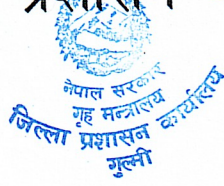 प्रशासन
नेपाल सरकार
गृह मन्त्रालय
जिल्ला प्रशासन कार्यालय
गुल्मी